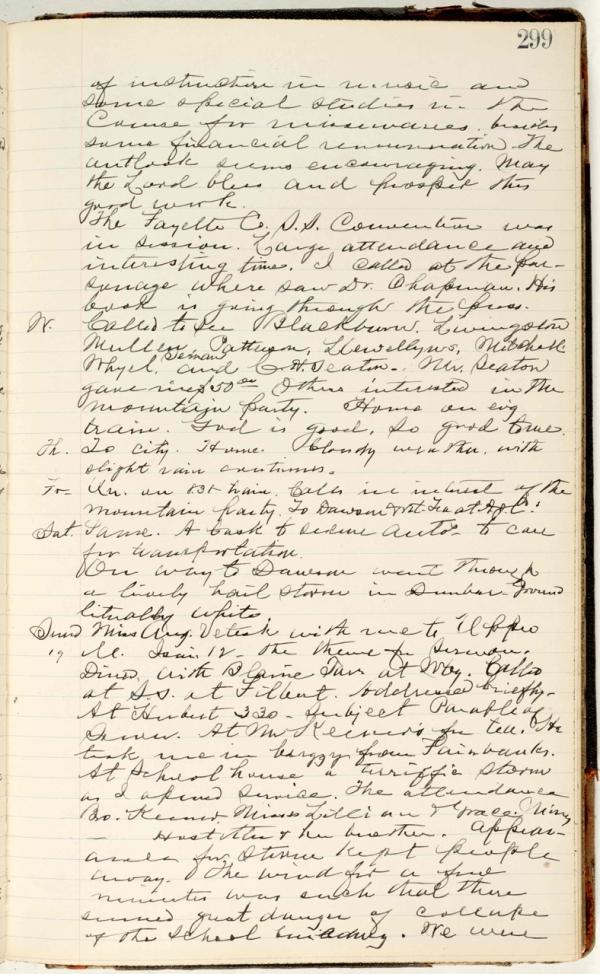 299
of instruction in music and
some special studies in the
Course for missionaries, besides
some financial remuneration. The
outlook seems encouraging. May
the Lord bless and prosper this
good work.
The Fayette Co. S.S. Convention was
in session. Large attendance and
interesting time. I called at the par-
sonage where saw Dr. Chapman. His
book is going through the press.
W. Called to see Blackburn, Livingston
Mullen, Patterson, Llewellyns, Mitchell
Whyel, and Seaton. Mr. Seaton
gave me $50 Others interested in the
mountain party. Home on evg
train. God is good, so good to me.
Th. To city. Home. Cloudy weather, with
slight rain continues.
Fr. Un. on 831 train. Calls in interest of the
mountain party. To Dawson
Sat. Same. A task to secure autos to care
for transportation.
On way to Dawson went through
a lively hail storm in Dunbar. Ground
litually white.
Sund Miss Aug. Vetesk with me to Upper
19 M. Isai. 12 - the theme for sermon.
Dined with Blaine at Called
at S.S. at Filbert. Addressed briefly.
At Herbert 3 30 - Subject Parable of
Sower. At Mr Keener's for tea. He
took me in buggy from Fairbanks.
At School house a terriffic storm
as I opened service. The attendance
Bro. Keener, Misses Lillian & Grace, Miss
— Hostetler & her brother. Appear-
ances for storm kept people
away. The wind for a few
minutes was such that there
seemed great danger of collapse
of the School building. We were